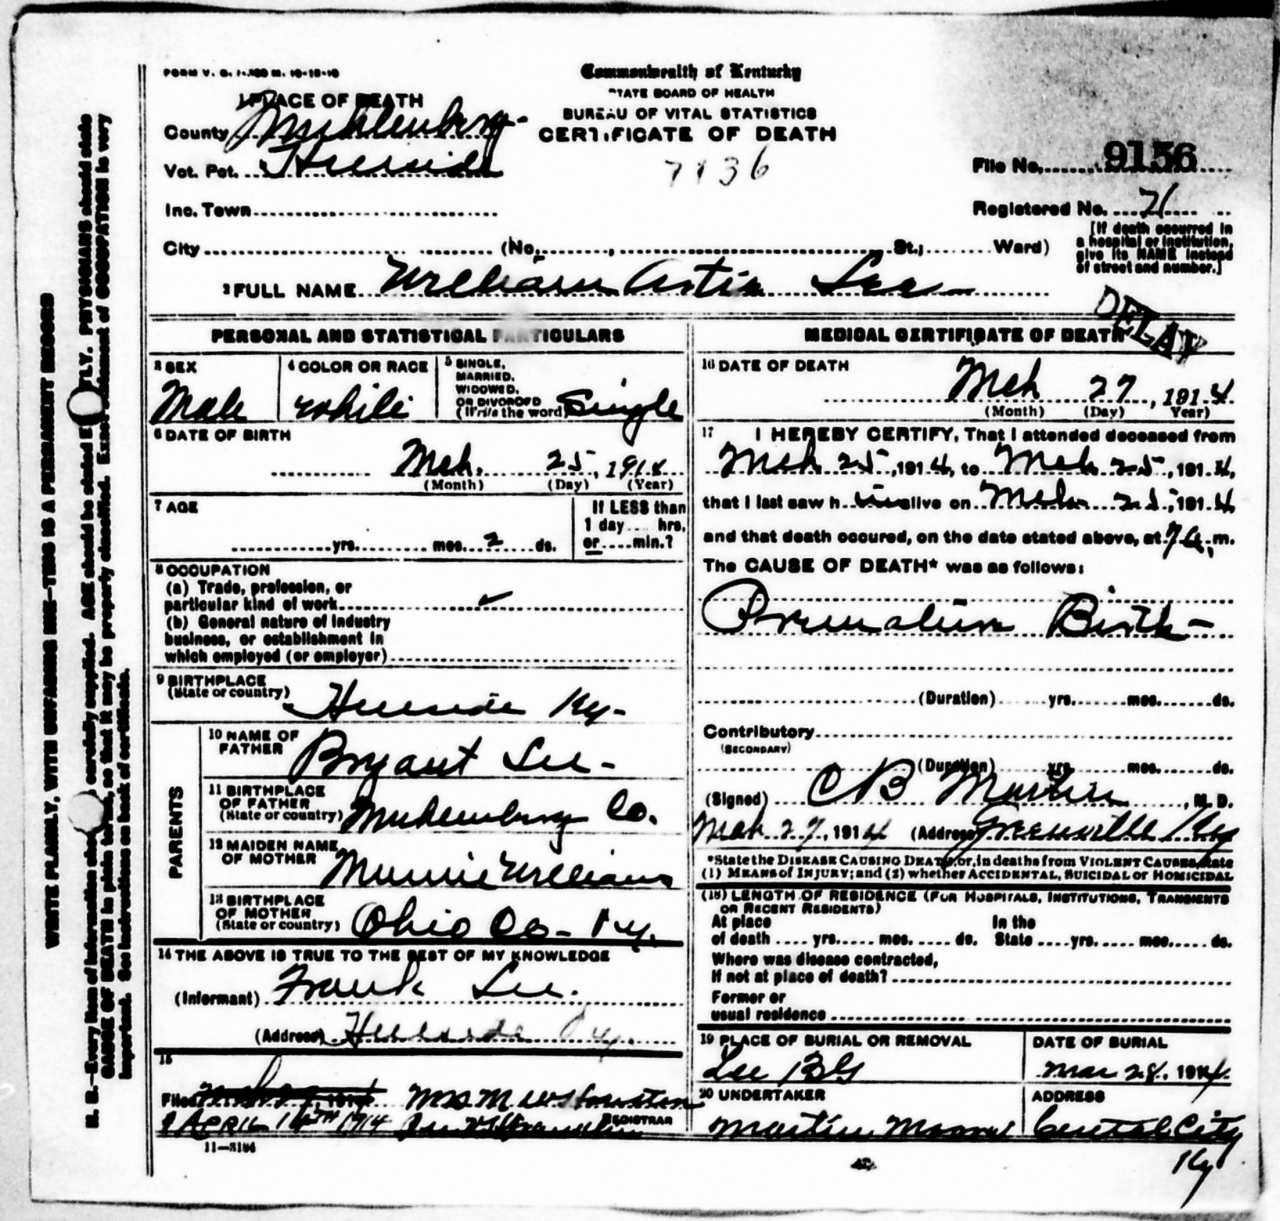 FORM V. S. 1-
Commonwealth of Kentucky
STATE BOARD OF HEALTH
BUREAU OF VITAL STATISTICS
CERTIFICATE OF DEATH
7136
1 PLACE OF DEATH
County Muhlenberg
Vot. Pct. Hillside
Inc. Town
City (No. , St.; Ward)
File No. 9156
Registered No. 21
[If death occurred in
a hospital or institution,
give its NAME instead
of street and number.]
2 FULL NAME William Artie Lee
DELAY
PERSONAL AND STATISTICAL PARTICULARS
3 SEX
Male
4 COLOR OR RACE
white
5 SINGLE,
MARRIED,
WIDOWED,
OR DIVORCED
(Write the word) Single
6 DATE OF BIRTH
Mch. 25, 1914
(Month) (Day) (Year)
7 AGE
yrs. mos. 2 ds.
If LESS than
1 day hrs.
or min.?
8 OCCUPATION
(a) Trade, profession, or
particular kind of work ✓
(b) General nature of industry
business, or establishment in
which employed (or employer)
9 BIRTHPLACE
(State or country) Hillside Ky-
PARENTS
10 NAME OF
FATHER Bryant Lee-
11 BIRTHPLACE
OF FATHER
(State or country) Muhlenberg Co.
12 MAIDEN NAME
OF MOTHER Minnie Williams
13 BIRTHPLACE
OF MOTHER
(State or country) Ohio Co- Ky.
14 THE ABOVE IS TRUE TO THE BEST OF MY KNOWLEDGE
(Informant) Frank Lee.
(Address) Hillside Ky.
15
Filed 1914 Mrs M W Houston
APRIL 16TH 1914 REGISTRAR
11-3184
MEDICAL CERTIFICATE OF DEATH
16 DATE OF DEATH
Mch 27, 1914
(Month) (Day) (Year)
17 I HEREBY CERTIFY, That I attended deceased from
Mch 25, 1914, to Mch 25, 1914,
that I last saw h im alive on Mch 25, 1914,
and that death occured, on the date stated above, at 7 a.m.
The CAUSE OF DEATH* was as follows:
Premature Birth-
(Duration) yrs. mos. ds.
Contributory
(SECONDARY)
(Duration) yrs. mos. ds.
(Signed) C B Martin, M. D.
Mch 27, 1914 (Address) Greenville Ky
*State the DISEASE CAUSING DEATH, or, in deaths from VIOLENT CAUSES, state
(1) MEANS OF INJURY; and (2) whether ACCIDENTAL, SUICIDAL or HOMICIDAL
(18) LENGTH OF RESIDENCE (FOR HOSPITALS, INSTITUTIONS, TRANSIENTS
OR RECENT RESIDENTS)
At place In the
of death yrs. mos. ds. State yrs. mos. ds.
Where was disease contracted,
if not at place of death?
Former or
usual residence
19 PLACE OF BURIAL OR REMOVAL
Lee BG
DATE OF BURIAL
Mar 28, 1914
20 UNDERTAKER
Martin Moore
ADDRESS
Central City
Ky
WRITE PLAINLY, WITH UNFADING INK—THIS IS A PERMANENT RECORD
N. B.—Every item of information should be carefully supplied. AGE should be stated EXACTLY. PHYSICIANS should state
CAUSE OF DEATH in plain terms, so that it may be properly classified. Exact statement of OCCUPATION is very
important. See instructions on back of certificate.